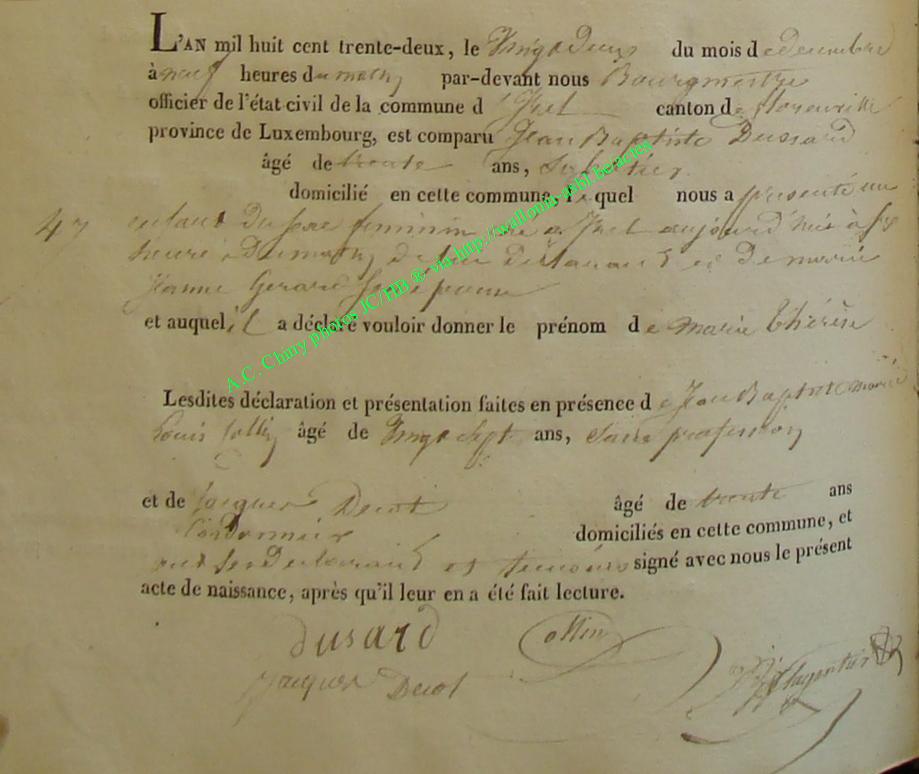 L'AN mil huit cent trente-deux, le Vingt Deux du mois de decembre
à neuf heures du matin par-devant nous Bourgmestre
officier de l'état civil de la commune d' canton de florenville
province de Luxembourg, est comparu Jean Baptiste Dussard
âgé de trente ans, Sabotier
domicilié en cette commune, lequel nous a presenté un
47 enfant du sexe feminin né a aujourd'hui à six
heure du matin, de lui declarant et de marie
jeanne Gerard Son epouse
et auquel il a déclaré vouloir donner le prénom de marie thérèse
Lesdites déclaration et présentation faites en présence de Jean Baptiste marie
Louis Collin âgé de Vingt Sept ans, Sans profession
et de Jacques Decot âgé de trente ans
Cordonnier domiciliés en cette commune, et
declarant et temoins signé avec nous le présent
acte de naissance, après qu'il leur en a été fait lecture.
dusard Collin
Jacques Decot
A.C. Chiny photos JC/HB ® via http://wallonia-asbl.be/actes